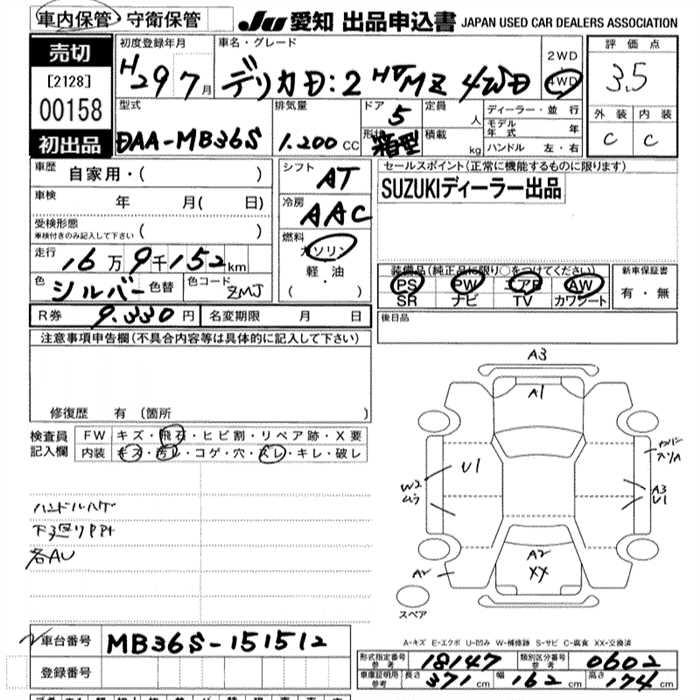 車内保管・守衛保管
JU 愛知 出品申込書 JAPAN USED CAR DEALERS ASSOCIATION
売切
[2128]
00158
初出品
初度登録年月
H29 7月
車名・グレード
デリカD:2 HV MZ 4WD
2WD
4WD
評価点
3.5
外装 内装
C C
型式
DAA-MB36S
排気量
1.200 CC
ドア 5
形状 箱型
定員 人
積載 kg
ディーラー・並行
モデル年式 年
ハンドル 左・右
車歴 自家用・( )
車検 年 月( 日)
受検形態
車検付きのみ記入して下さい ( )
走行 16万9千152km
色 シルバー 色替 色コード ZMJ
シフト AT
冷房 AAC
燃料
ガソリン
軽・油
( )
セールスポイント(正常に機能するものに限ります)
SUZUKIディーラー出品
装備品(純正品に限り○をつけてください)
PS PW エアB AW
SR ナビ TV カワシート
新車保証書
有・無
R券 9.330円 名変期限 月 日
後日品
注意事項申告欄(不具合内容等は具体的に記入して下さい)
修復歴 有 (箇所 )
検査員記入欄
FW キズ・飛石・ヒビ割・リペア跡・X要
内装 キズ・汚レ・コゲ・穴・スレ・キレ・破レ
ハンドルハゲ
下廻りPPサ
各AU
A3
A1
U1
W2
ムラ
スリA
A3
U1
A2
XX
A2
スペア
A-キズ E-エクボ U-凹み W-補修跡 S-サビ C-腐食 XX-交換済
車台番号 MB36S-151512
登録番号
形式指定番号 参考 18147 類別区分番号 参考 0602
車庫証明用 参考 長さ 371cm 幅 162cm 高さ 174cm